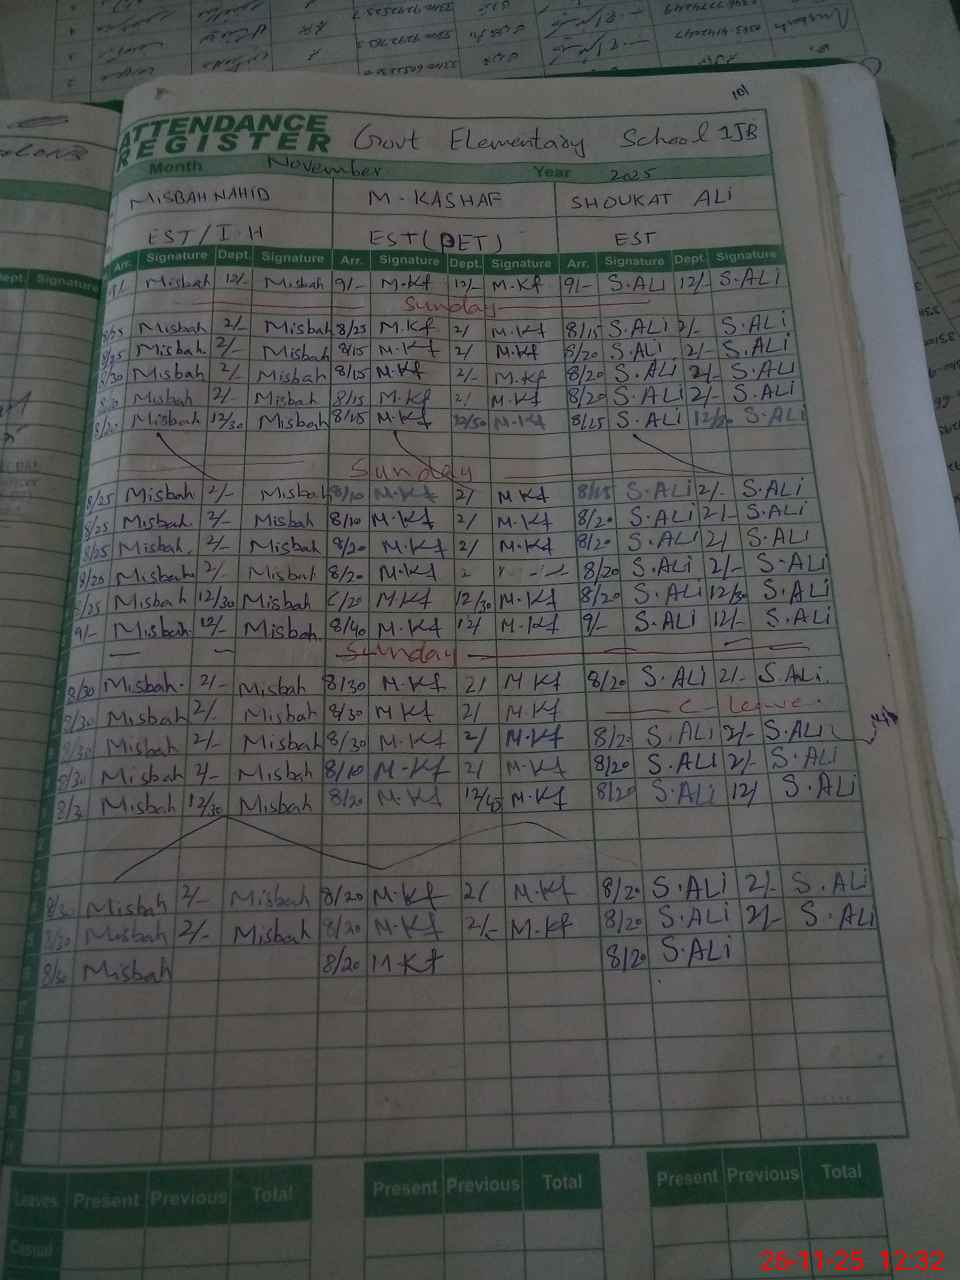 101
ATTENDANCE
REGISTER Govt Elementary School 1JB
Month November Year 2025
MISBAH NAHID M. KASHAF SHOUKAT ALi
EST/I.H EST(PET) EST
Dept. Signature Arr. Signature Dept. Signature Arr. Signature Dept. Signature Arr. Signature Dept. Signature
Misbah 12/- Misbah 9/- M.Kf 12/- M.Kf 9/- S.ALi 12/- S.ALi
Sunday
8/25 Misbah 2/- Misbah 8/25 M.Kf 2/ M.Kf 8/15 S.ALi 2/- S.ALi
8/25 Misbah 2/- Misbah 8/15 M.Kf 2/ M.Kf 8/20 S.ALi 2/- S.ALi
8/30 Misbah 2/- Misbah 8/15 M.Kf 2/- M.Kf 8/20 S.ALi 2/- S.ALi
Misbah 2/- Misbah 8/15 M.Kf 2/ M.Kf 8/20 S.ALi 2/- S.ALi
8/20 Misbah 12/30 Misbah 8/15 M.Kf M.Kf 8/15 S.ALi S.ALi
Sunday
8/25 Misbah 2/- Misbah 8/10 M.Kf 2/ M.Kf 8/15 S.ALi 2/- S.ALi
8/25 Misbah 2/- Misbah 8/10 M.Kf 2/ M.Kf 8/20 S.ALi 2/- S.ALi
8/25 Misbah 2/- Misbah 8/20 M.Kf 2/ M.Kf 8/20 S.ALi 2/ S.ALi
8/20 Misbah 2/- Misbah 8/20 M.Kf 2 8/20 S.ALi 2/- S.ALi
8/25 Misbah 12/30 Misbah 8/20 M.Kf 12/30 M.Kf 8/20 S.ALi 12/30 S.ALi
9/- Misbah 12/- Misbah 8/40 M.Kf 12/ M.Kf 9/- S.ALi 12/- S.ALi
Sunday
8/30 Misbah 2/- Misbah 8/30 M.Kf 2/ M.Kf 8/20 S.ALi 2/- S.ALi
8/30 Misbah 2/- Misbah 8/30 M.Kf 2/ M.Kf C-Leave
8/30 Misbah 2/- Misbah 8/30 M.Kf 2/ M.Kf 8/20 S.ALi 2/- S.ALi
8/30 Misbah 2/- Misbah 8/10 M.Kf 2/ M.Kf 8/20 S.ALi 2/- S.ALi
Misbah 12/30 Misbah 8/20 M.Kf 12/45 M.Kf 8/20 S.ALi 12/ S.ALi
8/30 Misbah 2/- Misbah 8/20 M.Kf 2/ M.Kf 8/20 S.ALi 2/- S.ALi
8/30 Misbah 2/- Misbah 8/20 M.Kf 2/- M.Kf 8/20 S.ALi 2/- S.ALi
8/30 Misbah 8/20 M.Kf 8/20 S.ALi
Leaves Present Previous Total Present Previous Total Present Previous Total
Casual
26-11-25 12:32